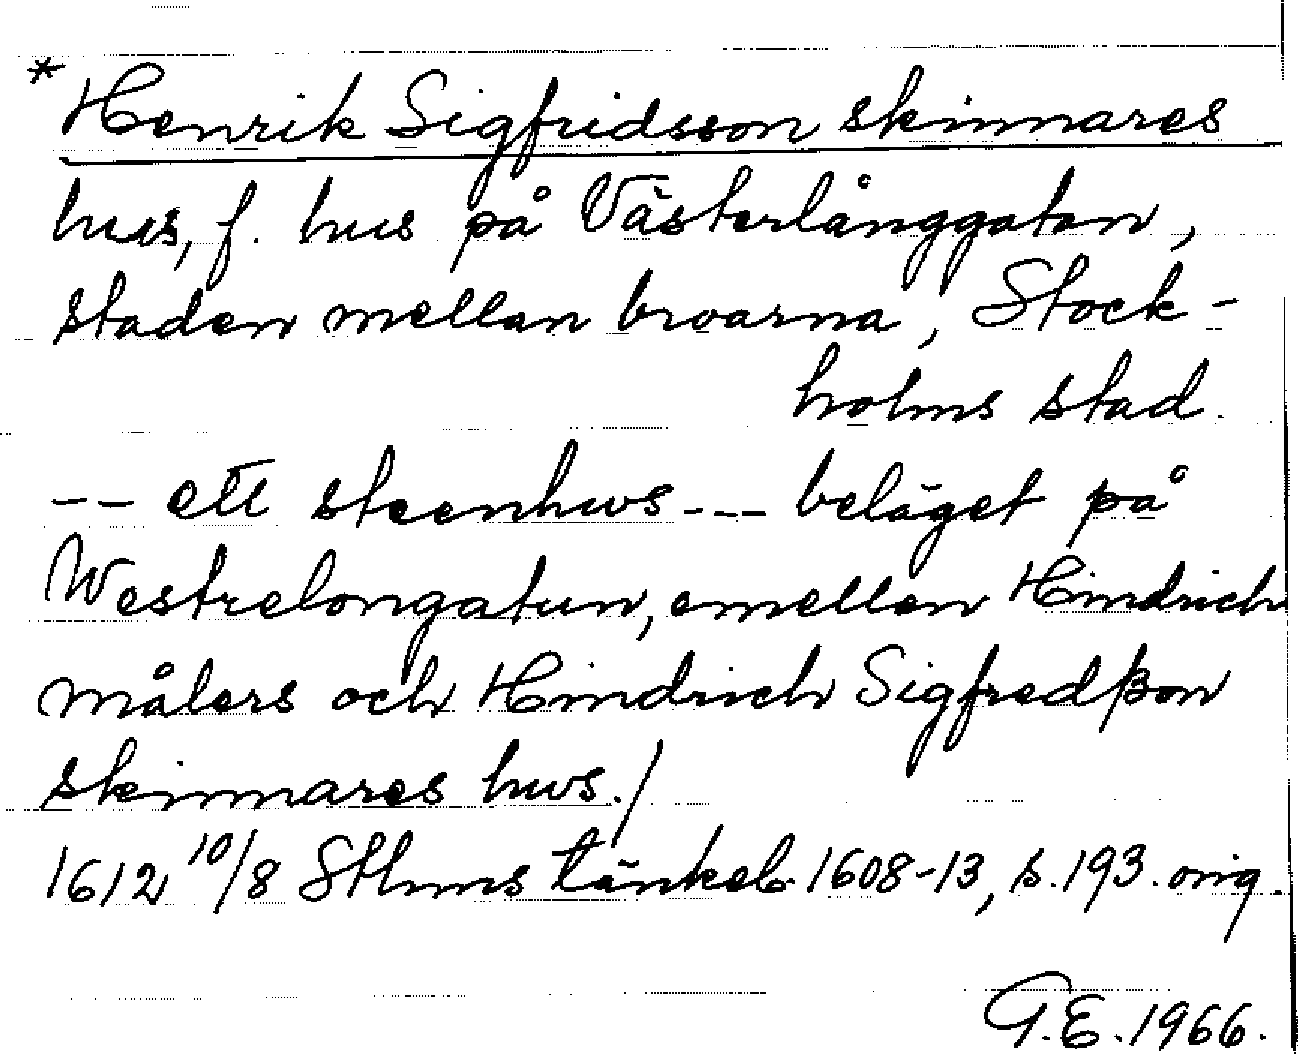 * Henrik Sigfridsson skinnares
hus, f. hus på Västerlånggatan,
staden mellan broarna, Stock-
holms stad.
-- ett steenhws --- beläget på
Westrelongatun, emellen Hindrich
målers och Hindrich Sigfredßon
skinnares hws./
1612 10/8 Sthms tänkeb. 1608-13, s. 193. orig.
G.E. 1966.